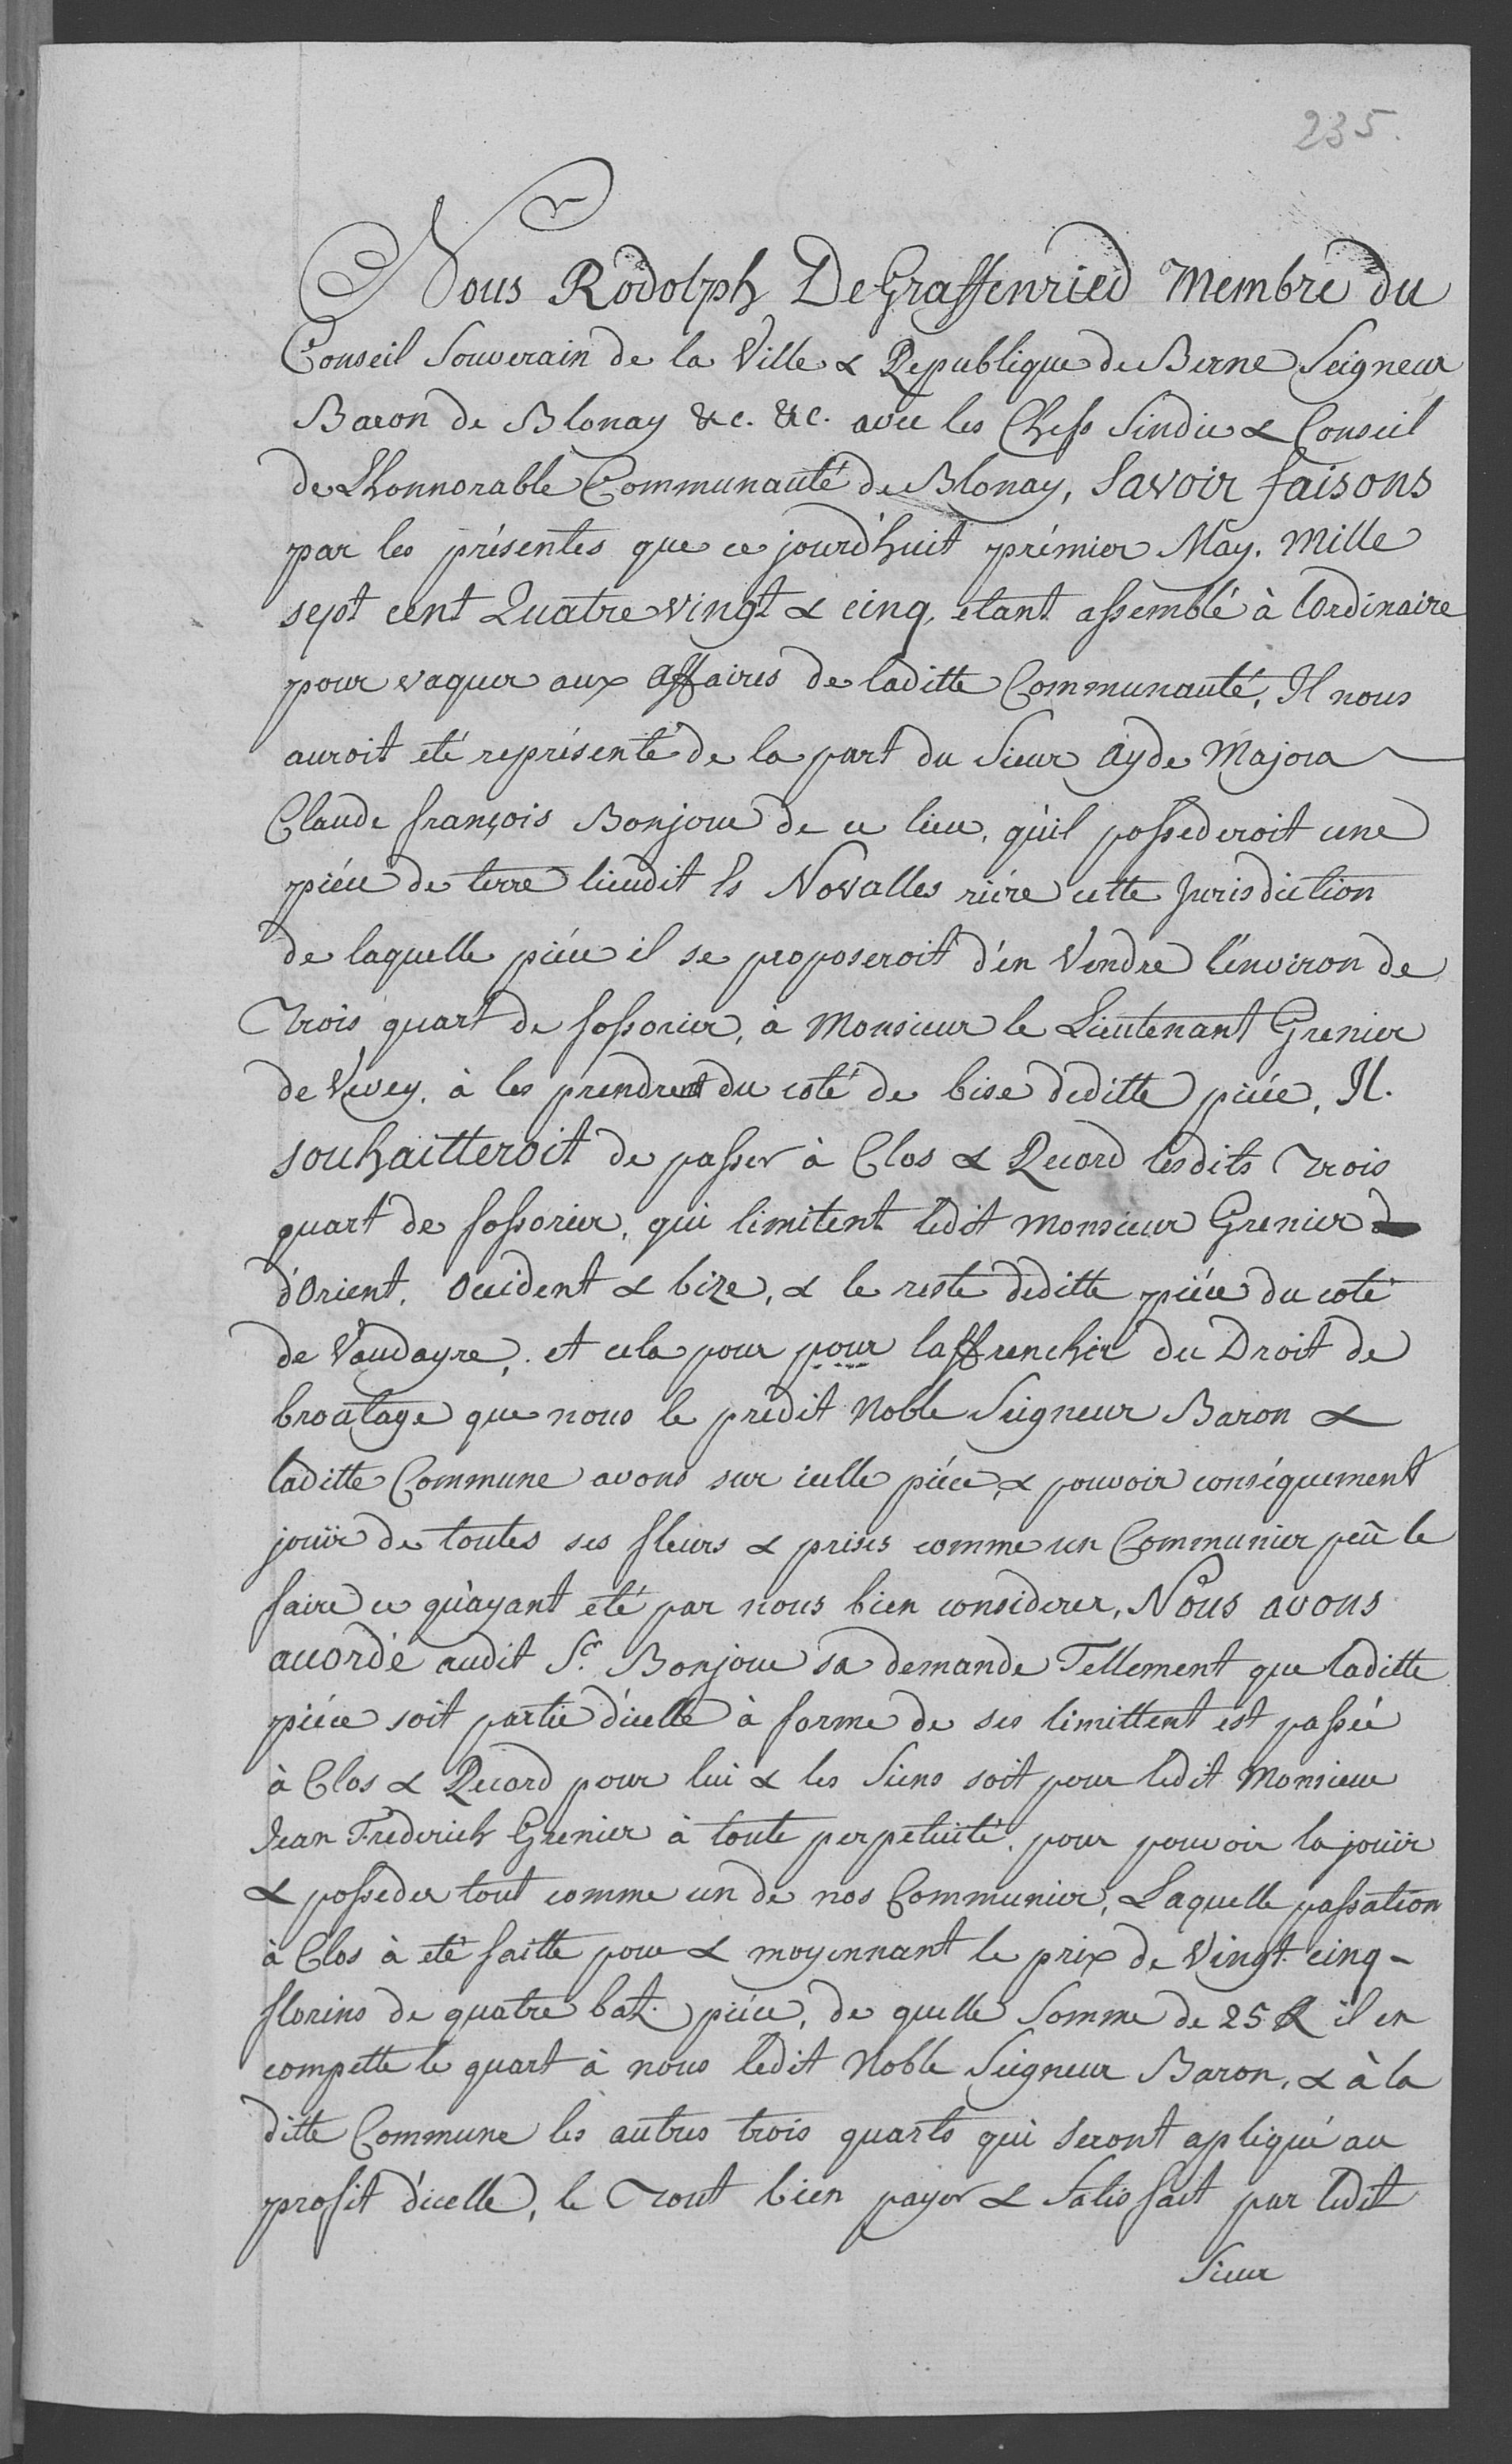 235.
Nous Rodolph DeGraffenried Membre du
Conseil Souverain de la Ville & Republique de Berne Seigneur
Baron de Blonay &c. &c. avec les Chefs Sindic & Conseil
de Lhonnorable Communauté de Blonay, Savoir faisons
par les présentes que ce jourd'huit prémier May. Mille
sept cent Quatre vingt & cinq, etant assemblé à lOrdinaire
pour vaquer aux affaires de laditte Communauté, Il nous
auroit eté représenté de la part du Sieur Ayde Major
Claude françois Bonjour de ce lieu, qu'il possederoit une
piéce de terre lieudit Es Novalles riére cette Jurisdiction
de laquelle piéce il se proposeroit d'en Vendre l'environ de
Trois quart de fossorier, à Monsieur le Lieutenant Grenier
de Vevey, à les prendre du coté de bise deditte piéce, Il
souhaitteroit de passer à Clos & Record lesdits Trois
quart de fossorier, qui limitent ledit Monsieur Grenier
d'Orient, Occident & bize, & le reste deditte piéce du coté
de Vaudayre, et cela pour pour laffrenchir du Droit de
broutage que nous le prédit Noble Seigneur Baron &
laditte Commune avons sur icelle piéce, & pouvoir conséquement
jouïr de toutes ses fleurs & prises comme un Communier peû le
faire ce qu'ayant eté par nous bien considerer, Nous avons
accordé audit Sr. Bonjour sa demande Tellement que laditte
piéce soit partie d'icelle à forme de ses limittent est passée
à Clos & Record pour lui & les Siens soit pour ledit Monsieur
Jean Frederich Grenier à toute perpetuité, pour pouvoir la jouïr
& posseder tout comme un de nos Communier, Laquelle passation
à Clos à eté faitte pour & moyennant le prix de Vingt cinq-
florins de quatre batz piéce, de quelle Somme de 25 il en
compette le quart à nous ledit Noble Seigneur Baron, & à la
ditte Commune les autres trois quarts qui seront apliqué au
profit d'icelle, le Tout bien payer & Satisfait par ledit
Sieur